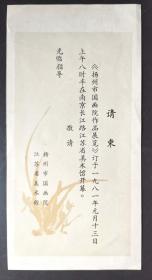 请柬
《扬州市国画院作品展览》订于一九八一年元月十三日
上午八时半在南京长江路江苏省美术馆开幕。
敬请
光临指导
扬州市国画院
江苏省美术馆